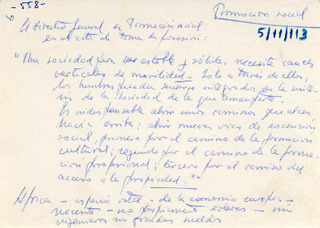 -558-
Promoción social
El director general de Promoción social
en el acto de toma de posesión:
5/11/113
"Una sociedad para ser estable y sólida, necesita cauces
verticales de movilidad. Solo a través de ellos,
los hombres pueden sentirse integrados en la
de la Sociedad de la que forman parte.
Es indispensable abrir unos caminos que
hacia arriba; abrir nuevas vías de ascensión
social, primero por el camino de la formación
cultural; segundo por el camino de la forma-
ción profesional; tercero por el camino del
acceso a la propiedad."
Africa - espacio vital - de la economía europea -
necesita - no propiamente -
ingenieros sin grandes sueldos.